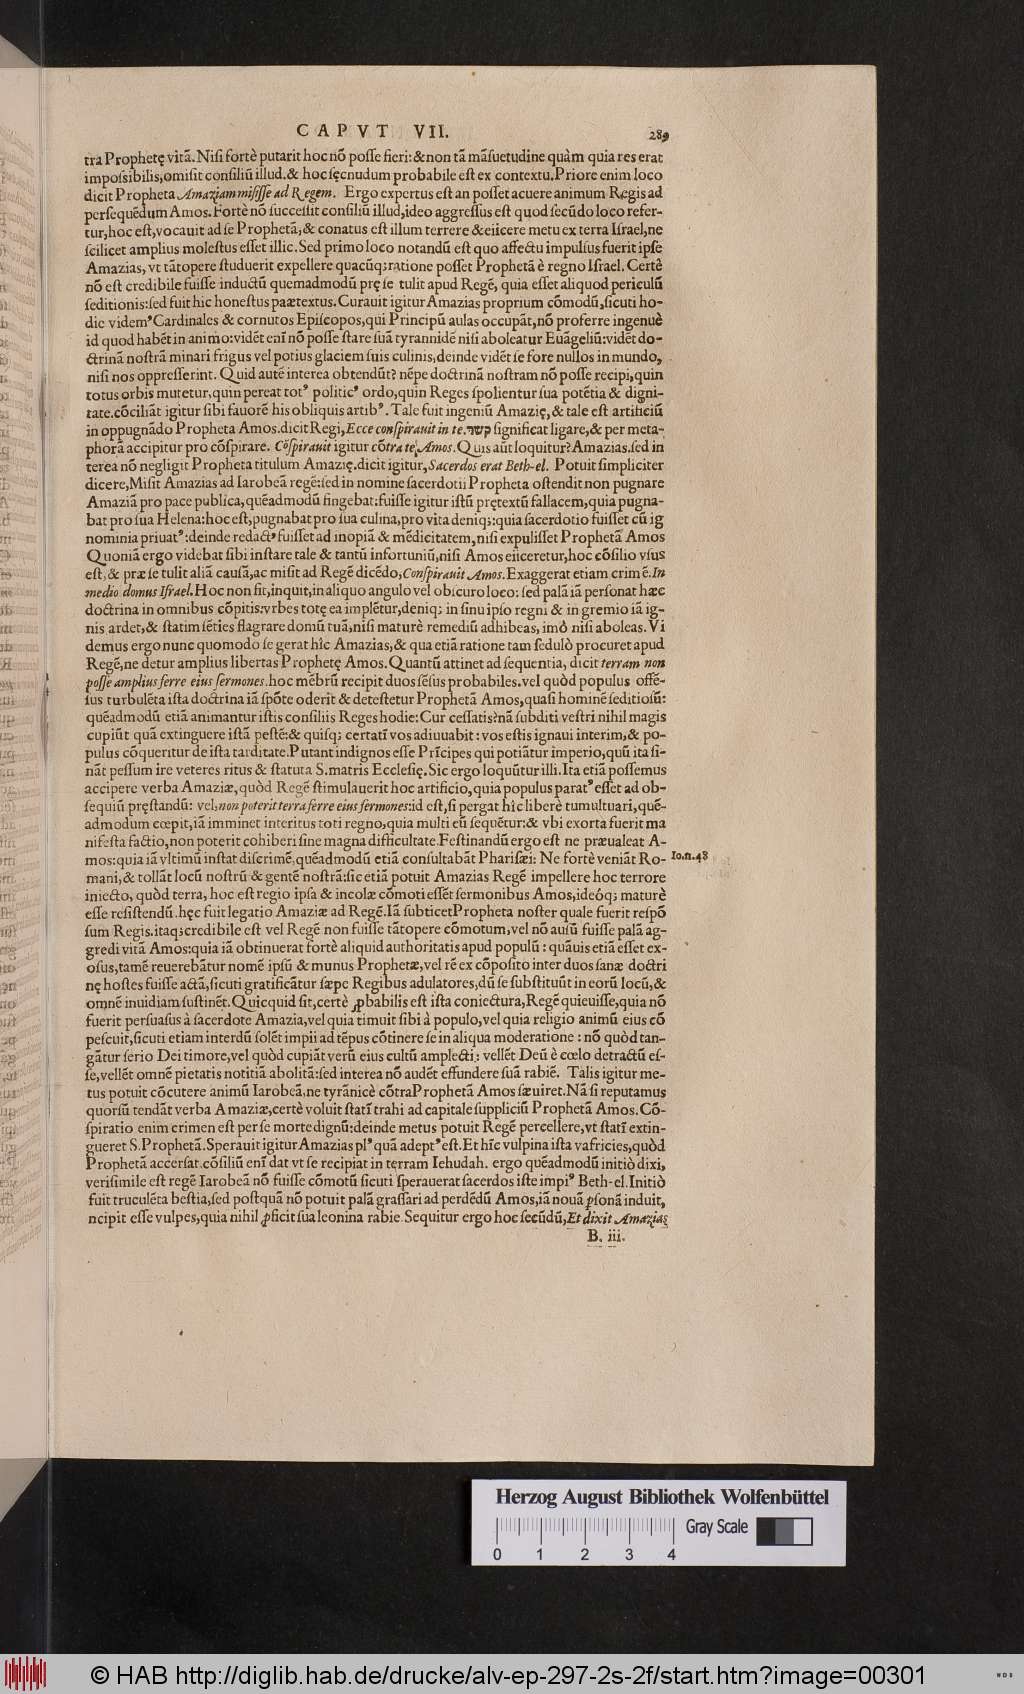 CAPVT VII. 289
tra Prophetę vitā. Nisi fortè putarit hoc nō posse fieri: & non tā māsuetudine quàm quia res erat
impossibilis, omisit consiliū illud. & hoc sęcnudum probabile est ex contextu. Priore enim loco
dicit Propheta Amaziam misisse ad Regem. Ergo expertus est an posset acuere animum Regis ad
persequēdum Amos. Fortè nō successit consiliū illud, ideo aggressus est quod secūdo loco refer-
tur, hoc est, vocauit ad se Prophetā, & conatus est illum terrere & eiicere metu ex terra Israel, ne
scilicet amplius molestus esset illic. Sed primo loco notandū est quo affectu impulsus fuerit ipse
Amazias, vt tātopere studuerit expellere quacūq; ratione posset Prophetā è regno Israel. Certè
nō est credibile fuisse inductū quemadmodū prę se tulit apud Regē, quia esset aliquod periculū
seditionis: sed fuit hic honestus paætextus. Curauit igitur Amazias proprium cōmodū, sicuti ho-
die videmꝰ Cardinales & cornutos Episcopos, qui Principū aulas occupāt, nō proferre ingenuè
id quod habēt in animo: vidēt enī nō posse stare suā tyrannidē nisi aboleatur Euāgeliū: vidēt do-
ctrinā nostrā minari frigus vel potius glaciem suis culinis, deinde vidēt se fore nullos in mundo,
nisi nos oppresserint. Quid autē interea obtendūt? nēpe doctrinā nostram nō posse recipi, quin
totus orbis mutetur, quin pereat totꝰ politicꝰ ordo, quin Reges spolientur sua potētia & digni-
tate. cōciliāt igitur sibi fauorē his obliquis artibꝰ. Tale fuit ingeniū Amazię, & tale est artificiū
in oppugnādo Propheta Amos. dicit Regi, Ecce conspirauit in te. קשר significat ligare, & per meta-
phorā accipitur pro cōspirare. Cōspirauit igitur cōtra te Amos. Quis aūt loquitur? Amazias. sed in
terea nō negligit Propheta titulum Amazię. dicit igitur, Sacerdos erat Beth-el. Potuit simpliciter
dicere, Misit Amazias ad Iarobeā regē: sed in nomine sacerdotii Propheta ostendit non pugnare
Amaziā pro pace publica, quēadmodū fingebat: fuisse igitur istū prętextū fallacem, quia pugna-
bat pro sua Helena: hoc est, pugnabat pro sua culina, pro vita deniq;: quia sacerdotio fuisset cū ig
nominia priuatꝰ: deinde redactꝰ fuisset ad inopiā & mēdicitatem, nisi expulisset Prophetā Amos
Quoniā ergo videbat sibi instare tale & tantū infortuniū, nisi Amos eiiceretur, hoc cōsilio vsus
est, & præ se tulit aliā causā, ac misit ad Regē dicēdo, Conspirauit Amos. Exaggerat etiam crimē. In
medio domus Israel. Hoc non fit, inquit, in aliquo angulo vel obscuro loco: sed palā iā personat hæc
doctrina in omnibus cōpitis: vrbes totę ea implētur, deniq; in sinu ipso regni & in gremio iā ig-
nis ardet, & statim sēties flagrare domū tuā, nisi maturè remediū adhibeas, imò nisi aboleas. Vi
demus ergo nunc quomodo se gerat hîc Amazias, & qua etiā ratione tam sedulò procuret apud
Regē, ne detur amplius libertas Prophetę Amos. Quantū attinet ad sequentia, dicit terram non
posse amplius ferre eius sermones. hoc mēbrū recipit duos sēsus probabiles. vel quòd populus offē-
sus turbulēta ista doctrina iā spōte oderit & detestetur Prophetā Amos, quasi hominē seditiosū:
quēadmodū etiā animantur istis consiliis Reges hodie: Cur cessatis? nā subditi vestri nihil magis
cupiūt quā extinguere istā pestē: & quisq; certatī vos adiuuabit: vos estis ignaui interim, & po-
pulus cōqueritur de ista tarditate. Putant indignos esse Prīcipes qui potiātur imperio, quū ita si-
nāt pessum ire veteres ritus & statuta S. matris Ecclesię. Sic ergo loquūtur illi. Ita etiā possemus
accipere verba Amaziæ, quòd Regē stimulauerit hoc artificio, quia populus paratꝰ esset ad ob-
sequiū pręstandū: vel, non poterit terra ferre eius sermones: id est, si pergat hîc liberè tumultuari, quē-
admodum cœpit, iā imminet interitus toti regno, quia multi eū sequētur: & vbi exorta fuerit ma
nifesta factio, non poterit cohiberi sine magna difficultate. Festinandū ergo est ne præualeat A-
mos: quia iā vltimū instat discrimē, quēadmodū etiā consultabāt Pharisæi: Ne fortè veniāt Ro- Io. 11. 48
mani, & tollāt locū nostrū & gentē nostrā: sic etiā potuit Amazias Regē impellere hoc terrore
iniecto, quòd terra, hoc est regio ipsa & incolæ cōmoti essēt sermonibus Amos, ideóq; maturè
esse resistendū. hęc fuit legatio Amaziæ ad Regē. Iā subticet Propheta noster quale fuerit respō
sum Regis. itaq; credibile est vel Regē non fuisse tātopere cōmotum, vel nō ausū fuisse palā ag-
gredi vitā Amos: quia iā obtinuerat fortè aliquid authoritatis apud populū: quāuis etiā esset ex-
osus, tamē reuerebātur nomē ipsū & munus Prophetæ, vel rē ex cōposito inter duos sanæ doctri
nę hostes fuisse actā, sicuti gratificātur sæpe Regibus adulatores, dū se substituūt in eorū locū, &
omnē inuidiam sustinēt. Quicquid sit, certè ꝓbabilis est ista coniectura, Regē quieuisse, quia nō
fuerit persuasus à sacerdote Amazia, vel quia timuit sibi à populo, vel quia religio animū eius cō
pescuit, sicuti etiam interdū solēt impii ad tēpus cōtinere se in aliqua moderatione: nō quòd tan-
gātur serio Dei timore, vel quòd cupiāt verū eius cultū amplecti: vellēt Deū è cœlo detractū es-
se, vellēt omnē pietatis notitiā abolitā: sed interea nō audēt effundere suā rabiē. Talis igitur me-
tus potuit cōcutere animū Iarobeā, ne tyrānicè cōtra Prophetā Amos sæuiret. Nā si reputamus
quorsū tendāt verba Amaziæ, certè voluit statī trahi ad capitale suppliciū Prophetā Amos. Cō-
spiratio enim crimen est per se morte dignū: deinde metus potuit Regē percellere, vt statī extin-
gueret S. Prophetā. Sperauit igitur Amazias plꝰ quā adeptꝰ est. Et hîc vulpina ista vafricies, quòd
Prophetā accersat. cōsiliū enī dat vt se recipiat in terram Iehudah. ergo quēadmodū initiò dixi,
verisimile est regē Iarobeā nō fuisse cōmotū sicuti sperauerat sacerdos iste impiꝰ Beth-el. Initiò
fuit truculēta bestia, sed postquā nō potuit palā grassari ad perdēdū Amos, iā nouā ꝑsonā induit,
ncipit esse vulpes, quia nihil ꝓficit sua leonina rabie. Sequitur ergo hoc secūdū, Et dixit Amazias
B. iii.
Herzog August Bibliothek Wolfenbüttel
Gray Scale
0 1 2 3 4
© HAB http://diglib.hab.de/drucke/alv-ep-297-2s-2f/start.htm?image=00301